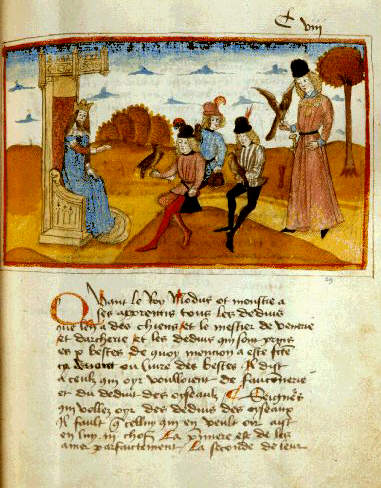 C viii
Quant le Roy Modus ot monstre a
ses apprentis tous les deduis
que les a des chiens et le mestier de venerie
et darcherie et les deduis qui sont prins
es bestes de quoy mencion a este fete
ou livre des bestes Il dist
a ceulx qui vouloient de fauconnerie
et du deduit des oyseaulx C Seigneurs
qui voullez oyr des deduis des oyseaux
Il fault q celluy qui en veult oir aist
en luy iii choses La pmiere est de les
amer parfaictement La seconde de leur